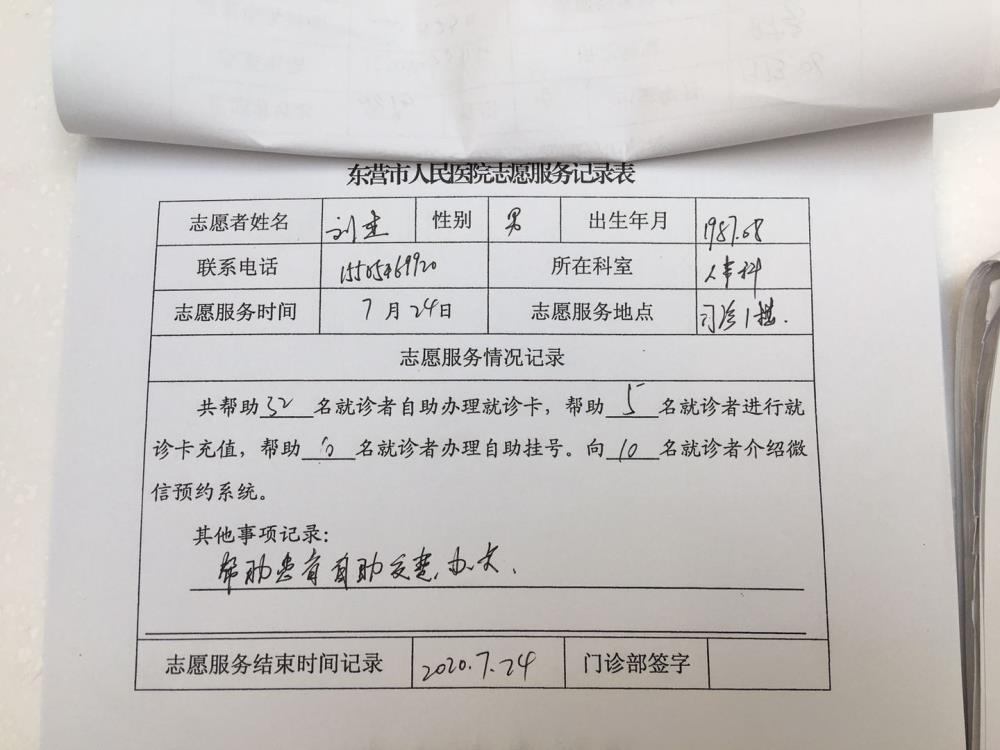 东营市人民医院志愿服务记录表
志愿者姓名 刘 性别 男 出生年月 1987.08
联系电话 15505469920 所在科室 人事科
志愿服务时间 7月24日 志愿服务地点 门诊1楼.
志愿服务情况记录
共帮助32名就诊者自助办理就诊卡，帮助5名就诊者进行就
诊卡充值，帮助名就诊者办理自助挂号。向10名就诊者介绍微
信预约系统。
其他事项记录：
帮助患者自助交费.办卡.
志愿服务结束时间记录 2020.7.24 门诊部签字